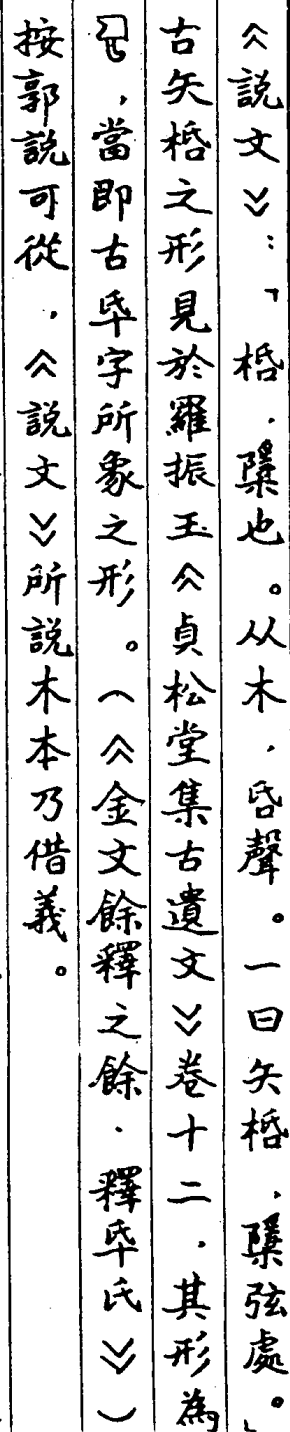 《說文》：「桰，檃也。从木，𠯑聲。一曰矢桰，檃弦處。」
古矢桰之形見於羅振玉《貞松堂集古遺文》卷十二，其形為
，當即古氒字所象之形。（《金文餘釋之餘·釋氒氏》）
按郭說可從，《說文》所說木本乃借義。